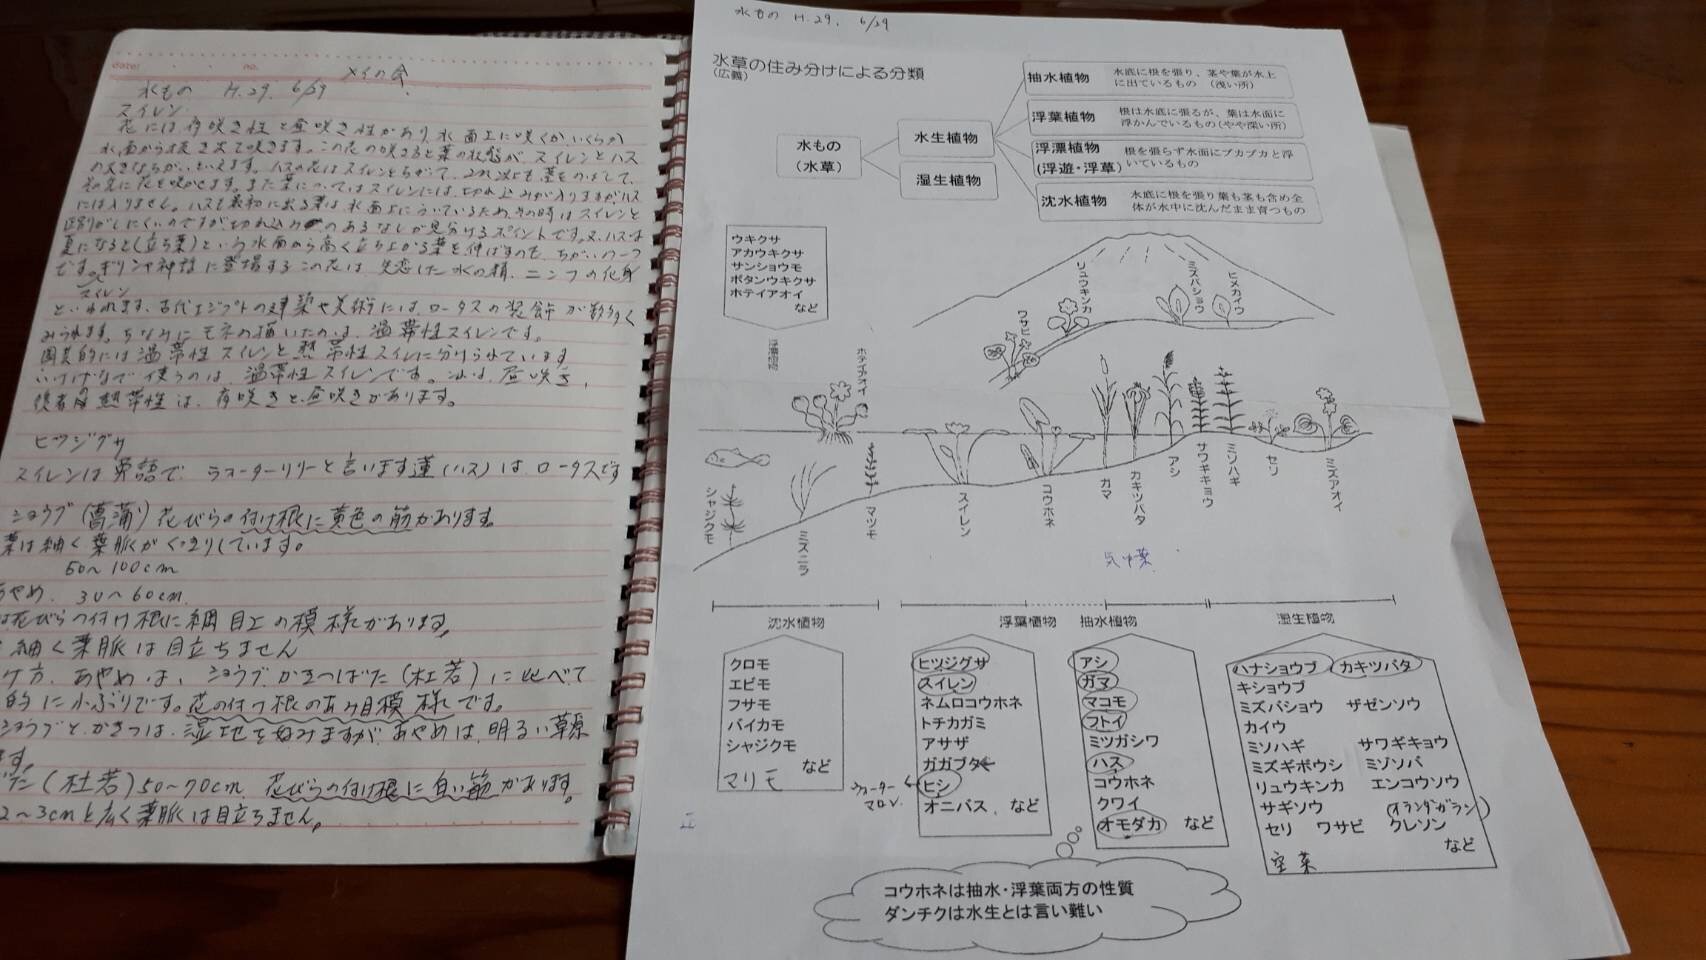 date: no. メイの会
水もの H.29. 6/29
スイレン
花には夜咲き性と昼咲き性があり水面上に咲くか、いくらか
水面から抜き出て咲きます。この花の咲き方と葉の状態が、スイレンとハス
の大きなちがいといえます。ハスの花はスイレンとちがって、それ以上も茎をのばして、
その先に花を咲かせます。また葉についてはスイレンには、切れ込みが入りますがハス
には入りません。ハスも最初に出る葉は水面上にういているため、その時はスイレンと
区別がしにくいのですが切れ込みのあるなしが見分けるポイントです。又、ハスは
夏になると(立ち葉)という水面から高く立ち上がる葉を伸ばすのも、ちがいの一つ
です。ギリシャ神話に登場するこの花は 失恋した水の精、ニンフの化身
スイレン
といわれます。古代エジプトの建築や美術にはロータスの装飾が数多く
みられます。ちなみにモネの描いたのは、温帯性スイレンです。
園芸的には温帯性スイレンと熱帯性スイレンに分けられています
いけばなで使うのは、温帯性スイレンです。これは、昼咲き、
後者熱帯性は、夜咲きと、昼咲きがあります。
ヒツジグサ
スイレンは英語で ウォーターリリーと言います蓮(ハス)はロータスです
ショウブ(菖蒲)花びらの付け根に黄色の筋があります。
葉は細く葉脈がくっきりしています。
50〜100cm
あやめ 30〜60cm
は花びらの付け根に網目上の模様があります。
細く葉脈は目立ちません
け方、あやめは、ショウブ、かきつばた(杜若)に比べて
的に小ぶりです。花の付け根のあみ目模様です。
ショウブと、かきつは、湿地を好みますが、あやめは、明るい草原
ます。
ばた(杜若)50〜70cm 花びらの付け根に白い筋があります。
2〜3cmと広く葉脈は目立ちません。
水もの H.29. 6/29
水草の住み分けによる分類
(広義)
水もの
(水草)
水生植物
湿生植物
抽水植物 水底に根を張り、茎や葉が水上
に出ているもの (浅い所)
浮葉植物 根は水底に張るが、葉は水面に
浮かんでいるもの(やや深い所)
浮漂植物
(浮遊・浮草) 根を張らず水面にプカプカと浮
いているもの
沈水植物 水底に根を張り葉も茎も含め全
体が水中に沈んだまま育つもの
ウキクサ
アカウキクサ
サンショウモ
ボタンウキクサ
ホテイアオイ
など
浮漂植物
ホテイアオイ
ワサビ
リュウキンカ
ミズバショウ
ヒメカイウ
シャジクモ
ミズニラ
マツモ
スイレン
コウホネ
ガマ
カキツバタ
アシ
サワギキョウ
ミソハギ
セリ
ミズアオイ
気中葉
沈水植物
浮葉植物
抽水植物
湿生植物
クロモ
エビモ
フサモ
バイカモ
シャジクモ
など
マリモ
ヒツジグサ
スイレン
ネムロコウホネ
トチカガミ
アサザ
ガガブタ
ヒシ
オニバス 、など
ウォーター
マロン
アシ
ガマ
マコモ
フトイ
ミツガシワ
ハス
コウホネ
クワイ
オモダカ など
ハナショウブ カキツバタ
キショウブ
ミズバショウ ザゼンソウ
カイウ
ミソハギ サワギキョウ
ミズギボウシ ミゾソバ
リュウキンカ エンコウソウ
サギソウ (オランダガラシ)
セリ ワサビ クレソン
など
空菜
コウホネは抽水・浮葉両方の性質
ダンチクは水生とは言い難い